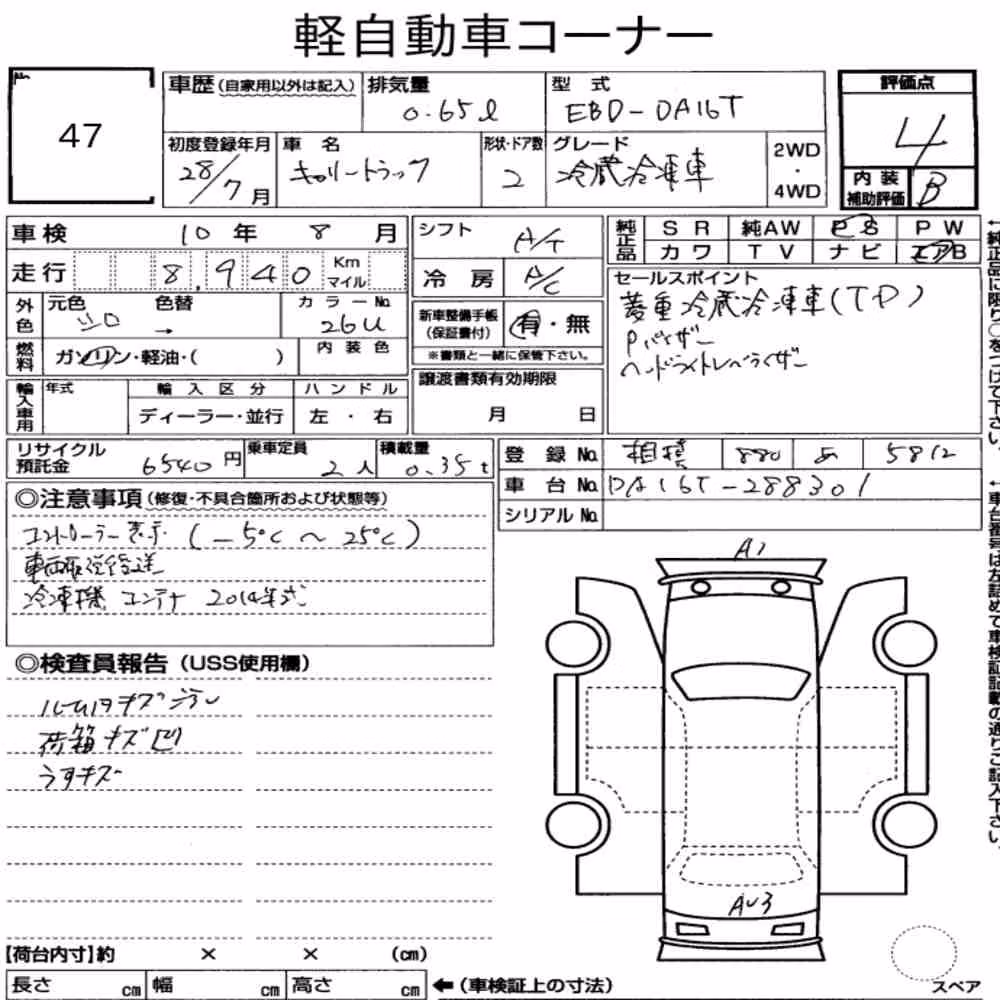 軽自動車コーナー
No.
47
車歴(自家用以外は記入)
排気量
0.65ℓ
型式
EBD-DA16T
評価点
4
初度登録年月
28/7月
車名
キャリートラック
形状・ドア数
2
グレード
冷蔵冷凍車
2WD
・
4WD
内装
補助評価
B
車検
10年 8月
シフト
A/T
純正品
SR 純AW PS PW
カワ TV ナビ エアB
走行
8,940
Km
マイル
冷房
A/C
セールスポイント
菱重冷蔵冷凍車(TP)
Pバイザー
ヘッドライトレベライザー
外色
元色
シロ
色替
→
カラーNo.
26U
新車整備手帳
(保証書付)
有・無
※書類と一緒に保管下さい。
燃料
ガソリン・軽油・( )
内装色
輸入車用
年式
輸入区分
ディーラー・並行
ハンドル
左・右
譲渡書類有効期限
月 日
リサイクル
預託金
6540円
乗車定員
2人
積載量
0.35t
登録No.
相模 880 あ 5812
車台No.
DA16T-288301
シリアルNo.
◎注意事項(修復・不具合箇所および状態等)
コントローラー表示 (-5℃~25℃)
冷凍機 コンテナ 2014年式
◎検査員報告(USS使用欄)
ルーム内キズ
荷箱キズ凹
うすキズ
A1
AU3
【荷台内寸】約 × × (cm)
長さ cm 幅 cm 高さ cm
←(車検証上の寸法)
スペア
←純正品に限り○をつけて下さい。
←車台番号は左詰めで車検証記載の通りご記入下さい。